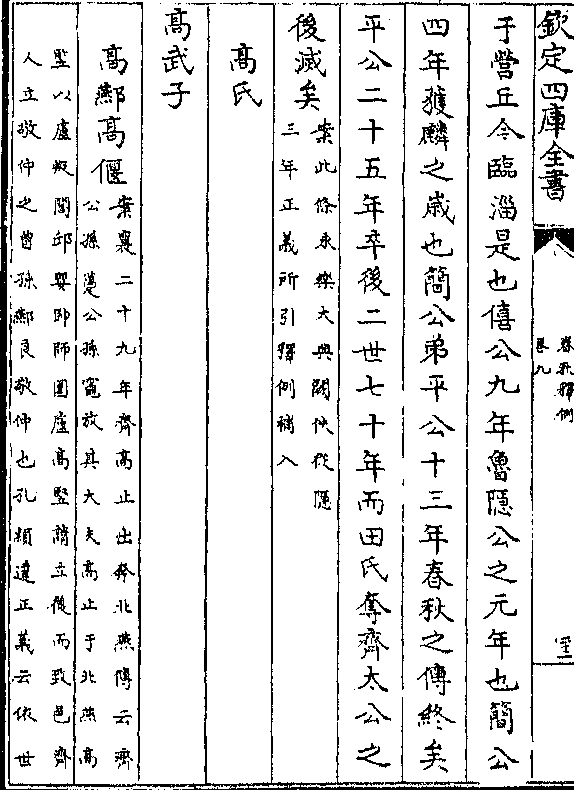 欽定四庫全書
春秋釋例
卷九
于營丘今臨淄是也僖公九年魯隱公之元年也簡公
四年獲麟之歲也簡公弟平公十三年春秋之傳終矣
平公二十五年卒後二世七十年而田氏奪齊太公之
後滅矣
案此條永樂大典闕佚從隱
三年正義所引釋例補入
高氏
高武子
高酀高偃
案襄二十九年齊高止出奔北燕傳云齊
公孫蠆公孫竈放其大夫高止于北燕高
竪以盧叛閭邱嬰帥師圍盧高竪請立後而致邑齊
人立敬仲之曾孫酀良敬仲也孔穎達正義云依世